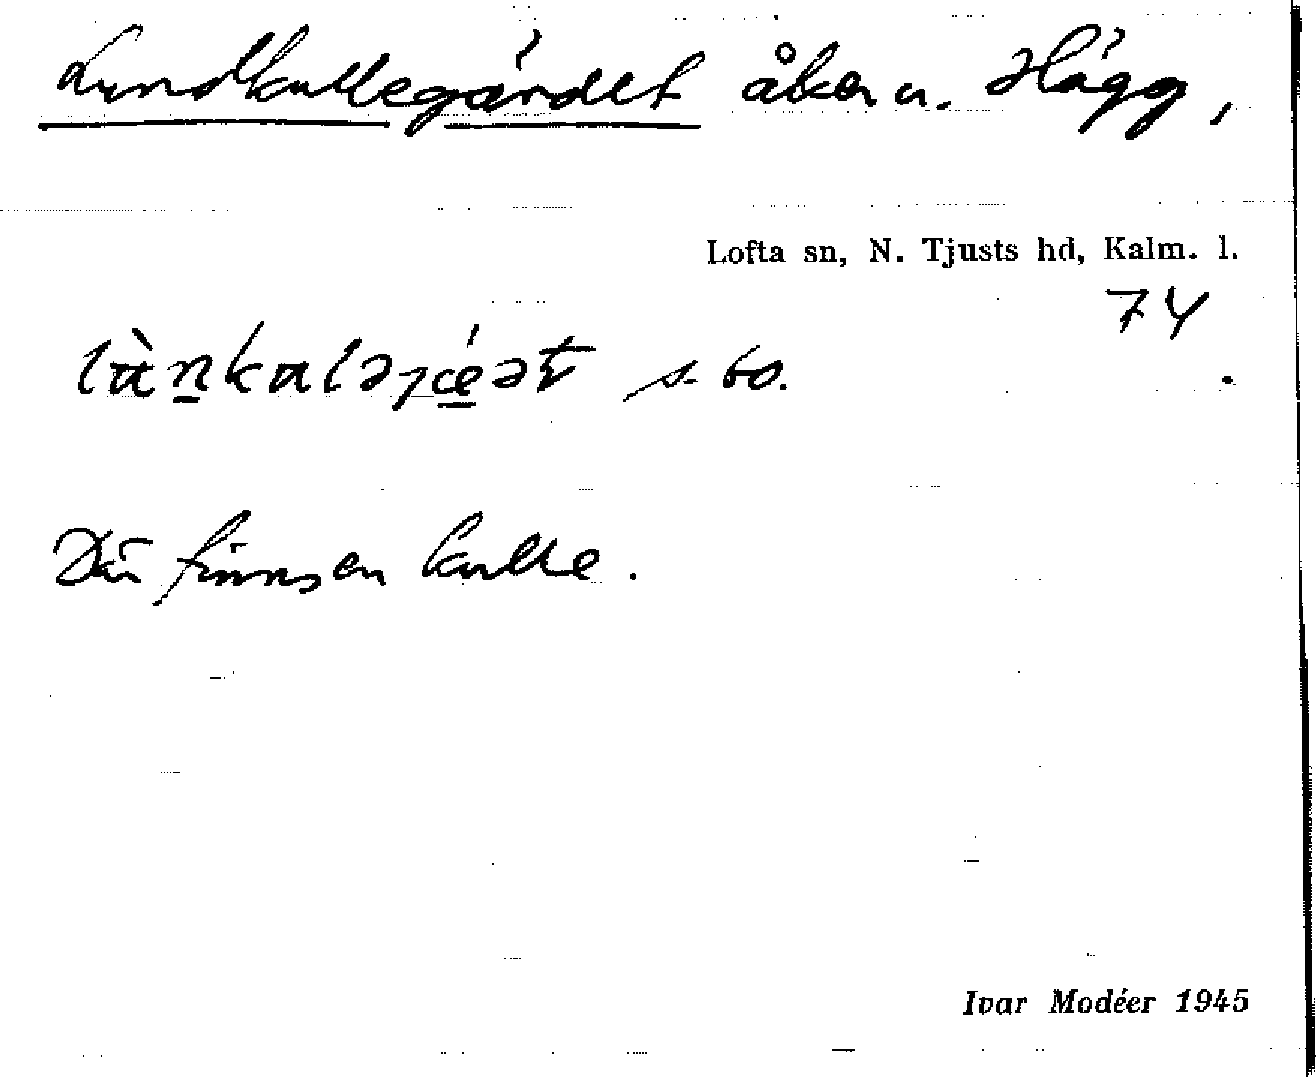 Lundkullegärdet åker u. Hägg,
Lofta sn, N. Tjusts hd, Kalm. l.
74
s. bo.
Där finns en kulle.
Ivar Modéer 1945